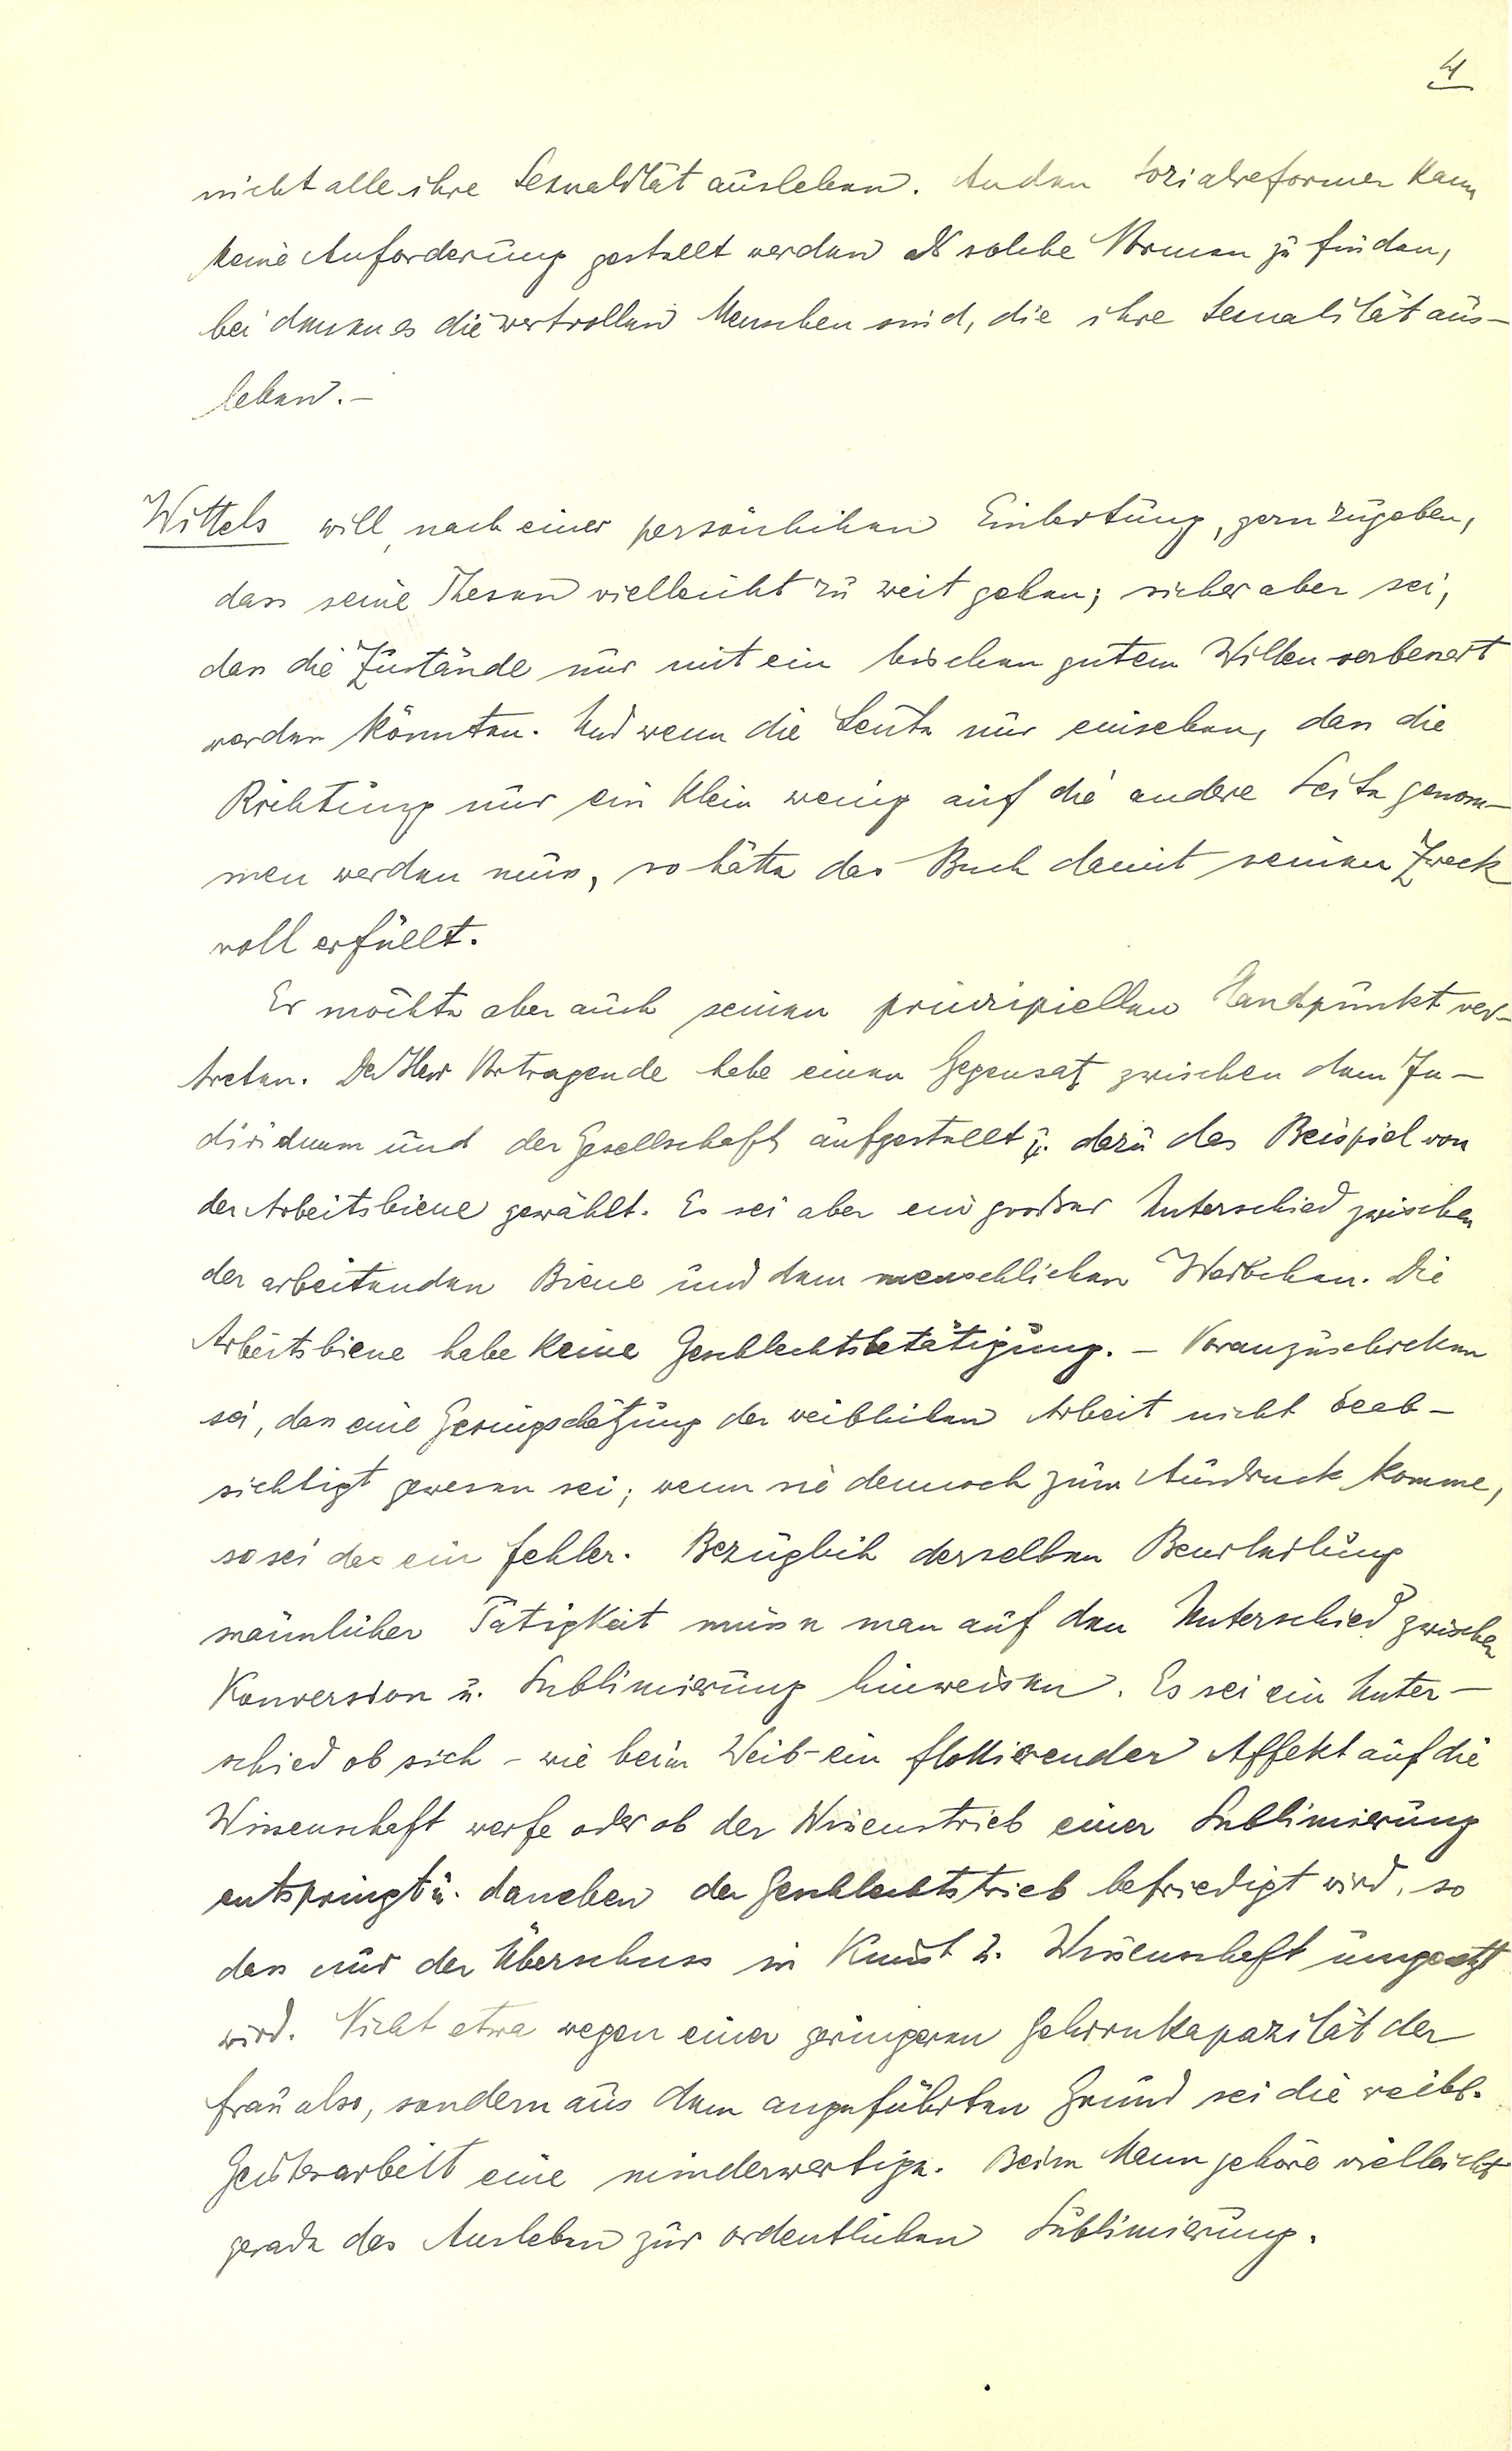 4
nicht alle ihre Sexualität ausleben. An den Sozialreformer kann
keine Anforderung gestellt werden als solche Normen zu finden,
bei denen es die wertvollen Menschen sind, die ihre Sexualität aus-
leben.-
Wittels will, nach einer persönlichen Einleitung, gern zugeben,
dass seine Thesen vielleicht zu weit gehen; sicher aber sei,
dass die Zustände nur mit ein bischen gutem Willen verbessert
werden könnten. Und wenn die Leute nur einsehen, dass die
Richtung nur ein klein wenig auf die andere Seite genom-
men werden muss, so hätte das Buch damit seinen Zweck
voll erfüllt.
Er möchte aber auch seinen prinzipiellen Standpunkt ver-
treten. Der Herr Vortragende habe einen Gegensatz zwischen dem In-
dividuum und der Gesellschaft aufgestellt u. dazu das Beispiel von
der Arbeitsbiene gewählt. Es sei aber ein grosser Unterschied zwischen
der arbeitenden Biene und dem menschlichen Weibchen. Die
Arbeitsbiene habe keine Geschlechtsbetätigung. - Voranzuschicken
sei, dass eine Geringschätzung der weiblichen Arbeit nicht beab-
sichtigt gewesen sei; wenn sie dennoch zum Ausdruck komme,
so sei das ein Fehler. Bezüglich derselben Beurteilung
männlicher Tätigkeit müsse man auf den Unterschied zwischen
Konversion u. Sublimierung hinweisen. Es sei ein Unter-
schied ob sich - wie beim Weib - ein flottierender Affekt auf die
Wissenschaft werfe oder ob der Wissenstrieb einer Sublimierung
entspringt u. daneben der Geschlechtstrieb befriedigt wird, so
dass nur der Überschuss in Kunst u. Wissenschaft umgesetzt
wird. Nicht etwa wegen einer geringeren Gehirnkapazität der
Frau also, sondern aus dem angeführten Grund sei die weibl.
Geistesarbeit eine minderwertige. Beim Mann gehöre vielleicht
gerade das Ausleben zur ordentlichen Sublimierung.